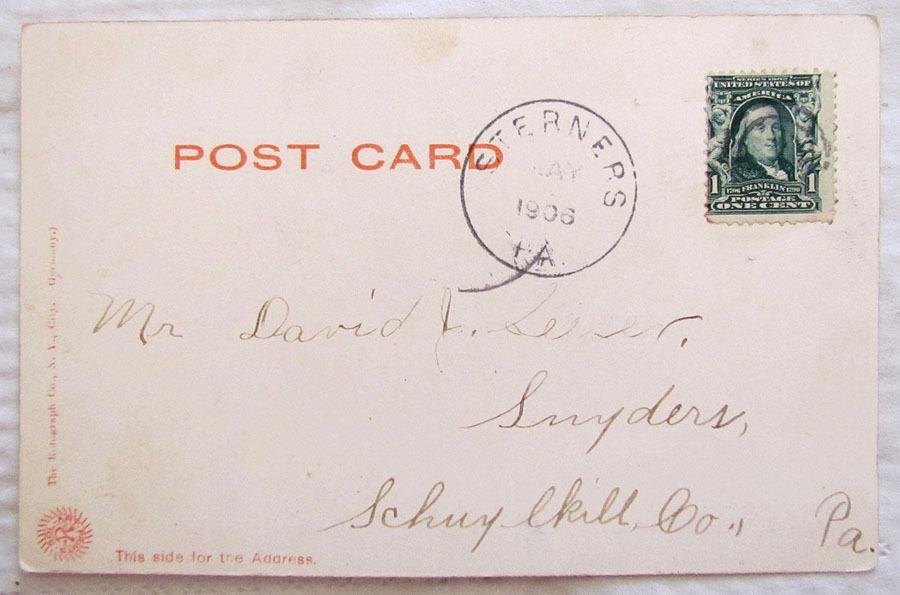 POST CARD
STERNERS
MAY
1906
PA.
SERIES 1902
UNITED STATES OF
AMERICA
1 1706 FRANKLIN 1790 1
POSTAGE
ONE CENT
Mr David J.
Snyders,
Schuylkill, Co., Pa.
The Rotograph Co., N. Y., City. Germany.)
This side for the Address.